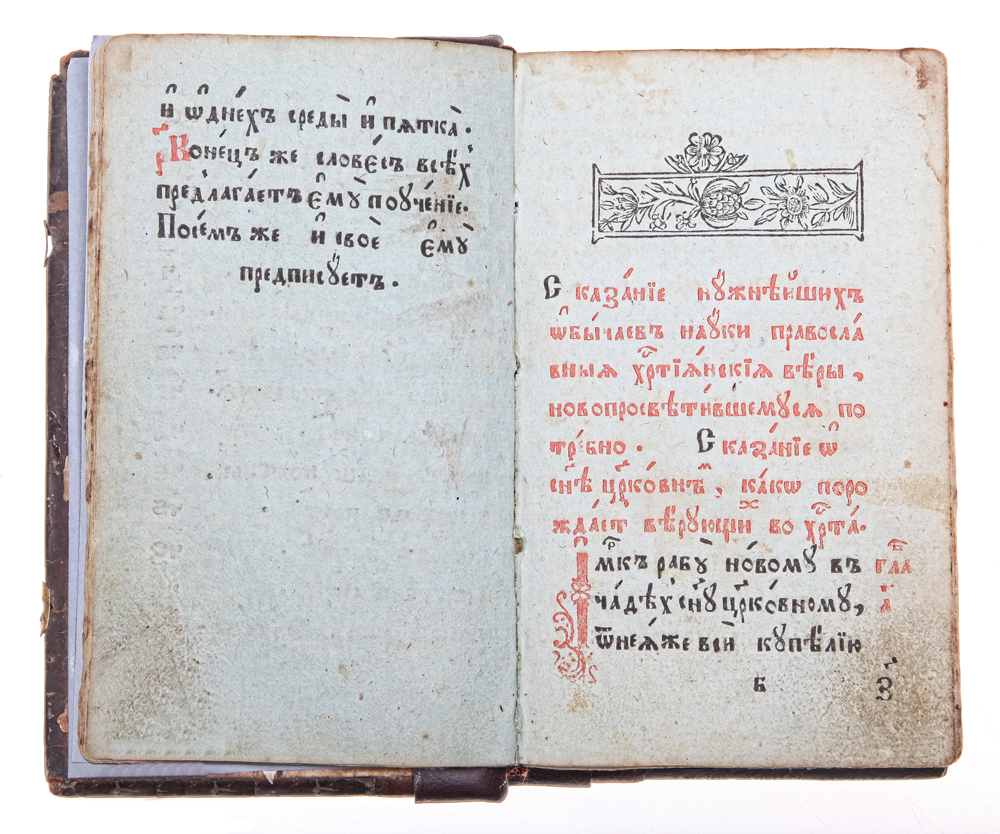 и҆ ѡ҆ дне́хъ среды̀ и҆ пѧтка̀.
Коне́цъ же слове́съ всѣ́х
предлага́етъ є҆мꙋ̀ поꙋче́нїе.
Посе́мъ же и҆ своѐ є҆мꙋ̀
предписꙋ́етъ.
Сказа́нїе нꙋжнѣ́йшихъ
ѡ҆бы́чаевъ наꙋ́ки правосла́
вныѧ хрⷭ҇тїѧ́нскїѧ вѣ́ры,
новопросвѣти́вшемꙋсѧ по
тре́бно. Сказа́нїе ѡ҆
сн҃ѣ цр҃ко́внѣⷨ, ка́кѡ поро
жда́ет вѣ́рꙋющиⷯ во хрⷭ҇та̀.
І҆́мкъ рабꙋ̀ но́вомꙋ въ гла
ча́дѣх сн҃ꙋ цр҃ко́вномꙋ, а҃
ѿнеѧ́же всѝ кꙋпѣ́лїю
в з҃